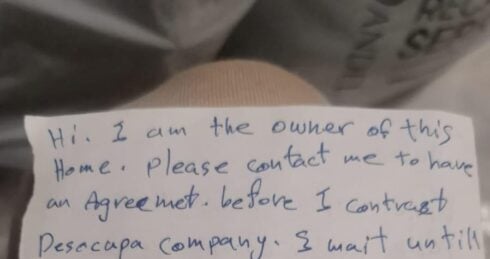 Hi. I am the owner of this
Home. please contact me to have
an Agreemet. before I contrast
Desocapa company. I wait untill